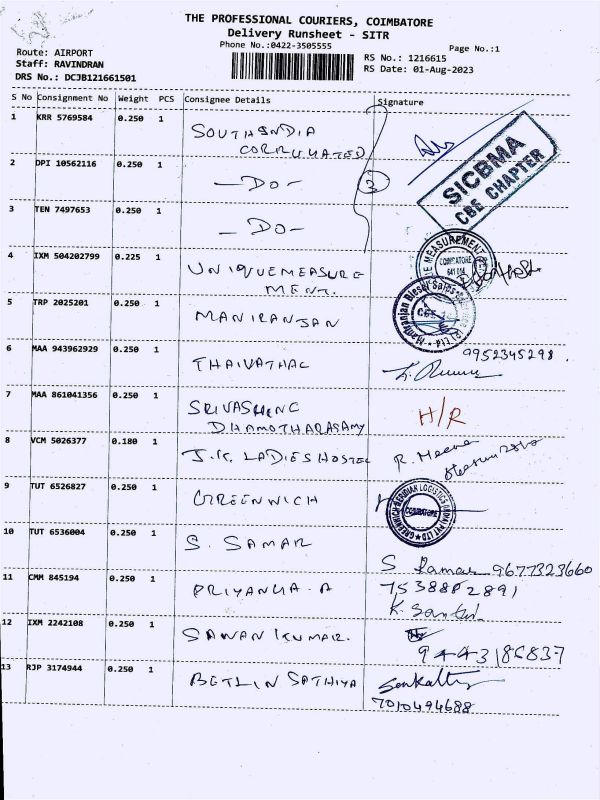 THE PROFESSIONAL COURIERS, COIMBATORE
Delivery Runsheet - SITR
Phone No.:0422-3505555
Page No.:1
Route: AIRPORT
Staff: RAVINDRAN
DRS No.: DCJB121661501
RS No.: 1216615
RS Date: 01-Aug-2023
S No Consignment No Weight PCS Consignee Details Signature
1 KRR 5769584 0.250 1 SOUTHINDIA
CORRUHATED
3
SICBMA
CBE CHAPTER
2 DPI 10562116 0.250 1 —DO—
3 TEN 7497653 0.250 1 —DO—
4 IXM 504202799 0.225 1 UNIQUEMEASURE
MENT.
COIMBATORE
5 TRP 2025201 0.250 1 MANIRANJAN
CBE
6 MAA 943962929 0.250 1 THAIVATHAL
9952345298.
7 MAA 861041356 0.250 1 SRIVASHINC
DHAMOTHARASAMY
H/R
8 VCM 5026377 0.180 1 J.K. LADIES HOSTEL R. Meena
9 TUT 6526827 0.250 1 GREENWICH
GREENWICH MERIDIAN LOGISTICS (INDIA) PVT LTD
COIMBATORE
10 TUT 6536004 0.250 1 S. SAMAR
S Ramar 9677323660
11 CMM 845194 0.250 1 PRIYANKA. A 7538882891
K. Santh
12 IXM 2242108 0.250 1 SAWAN KUMAR.
9443186837
13 RJP 3174944 0.250 1 BETLIN SATHIYA
7010494688